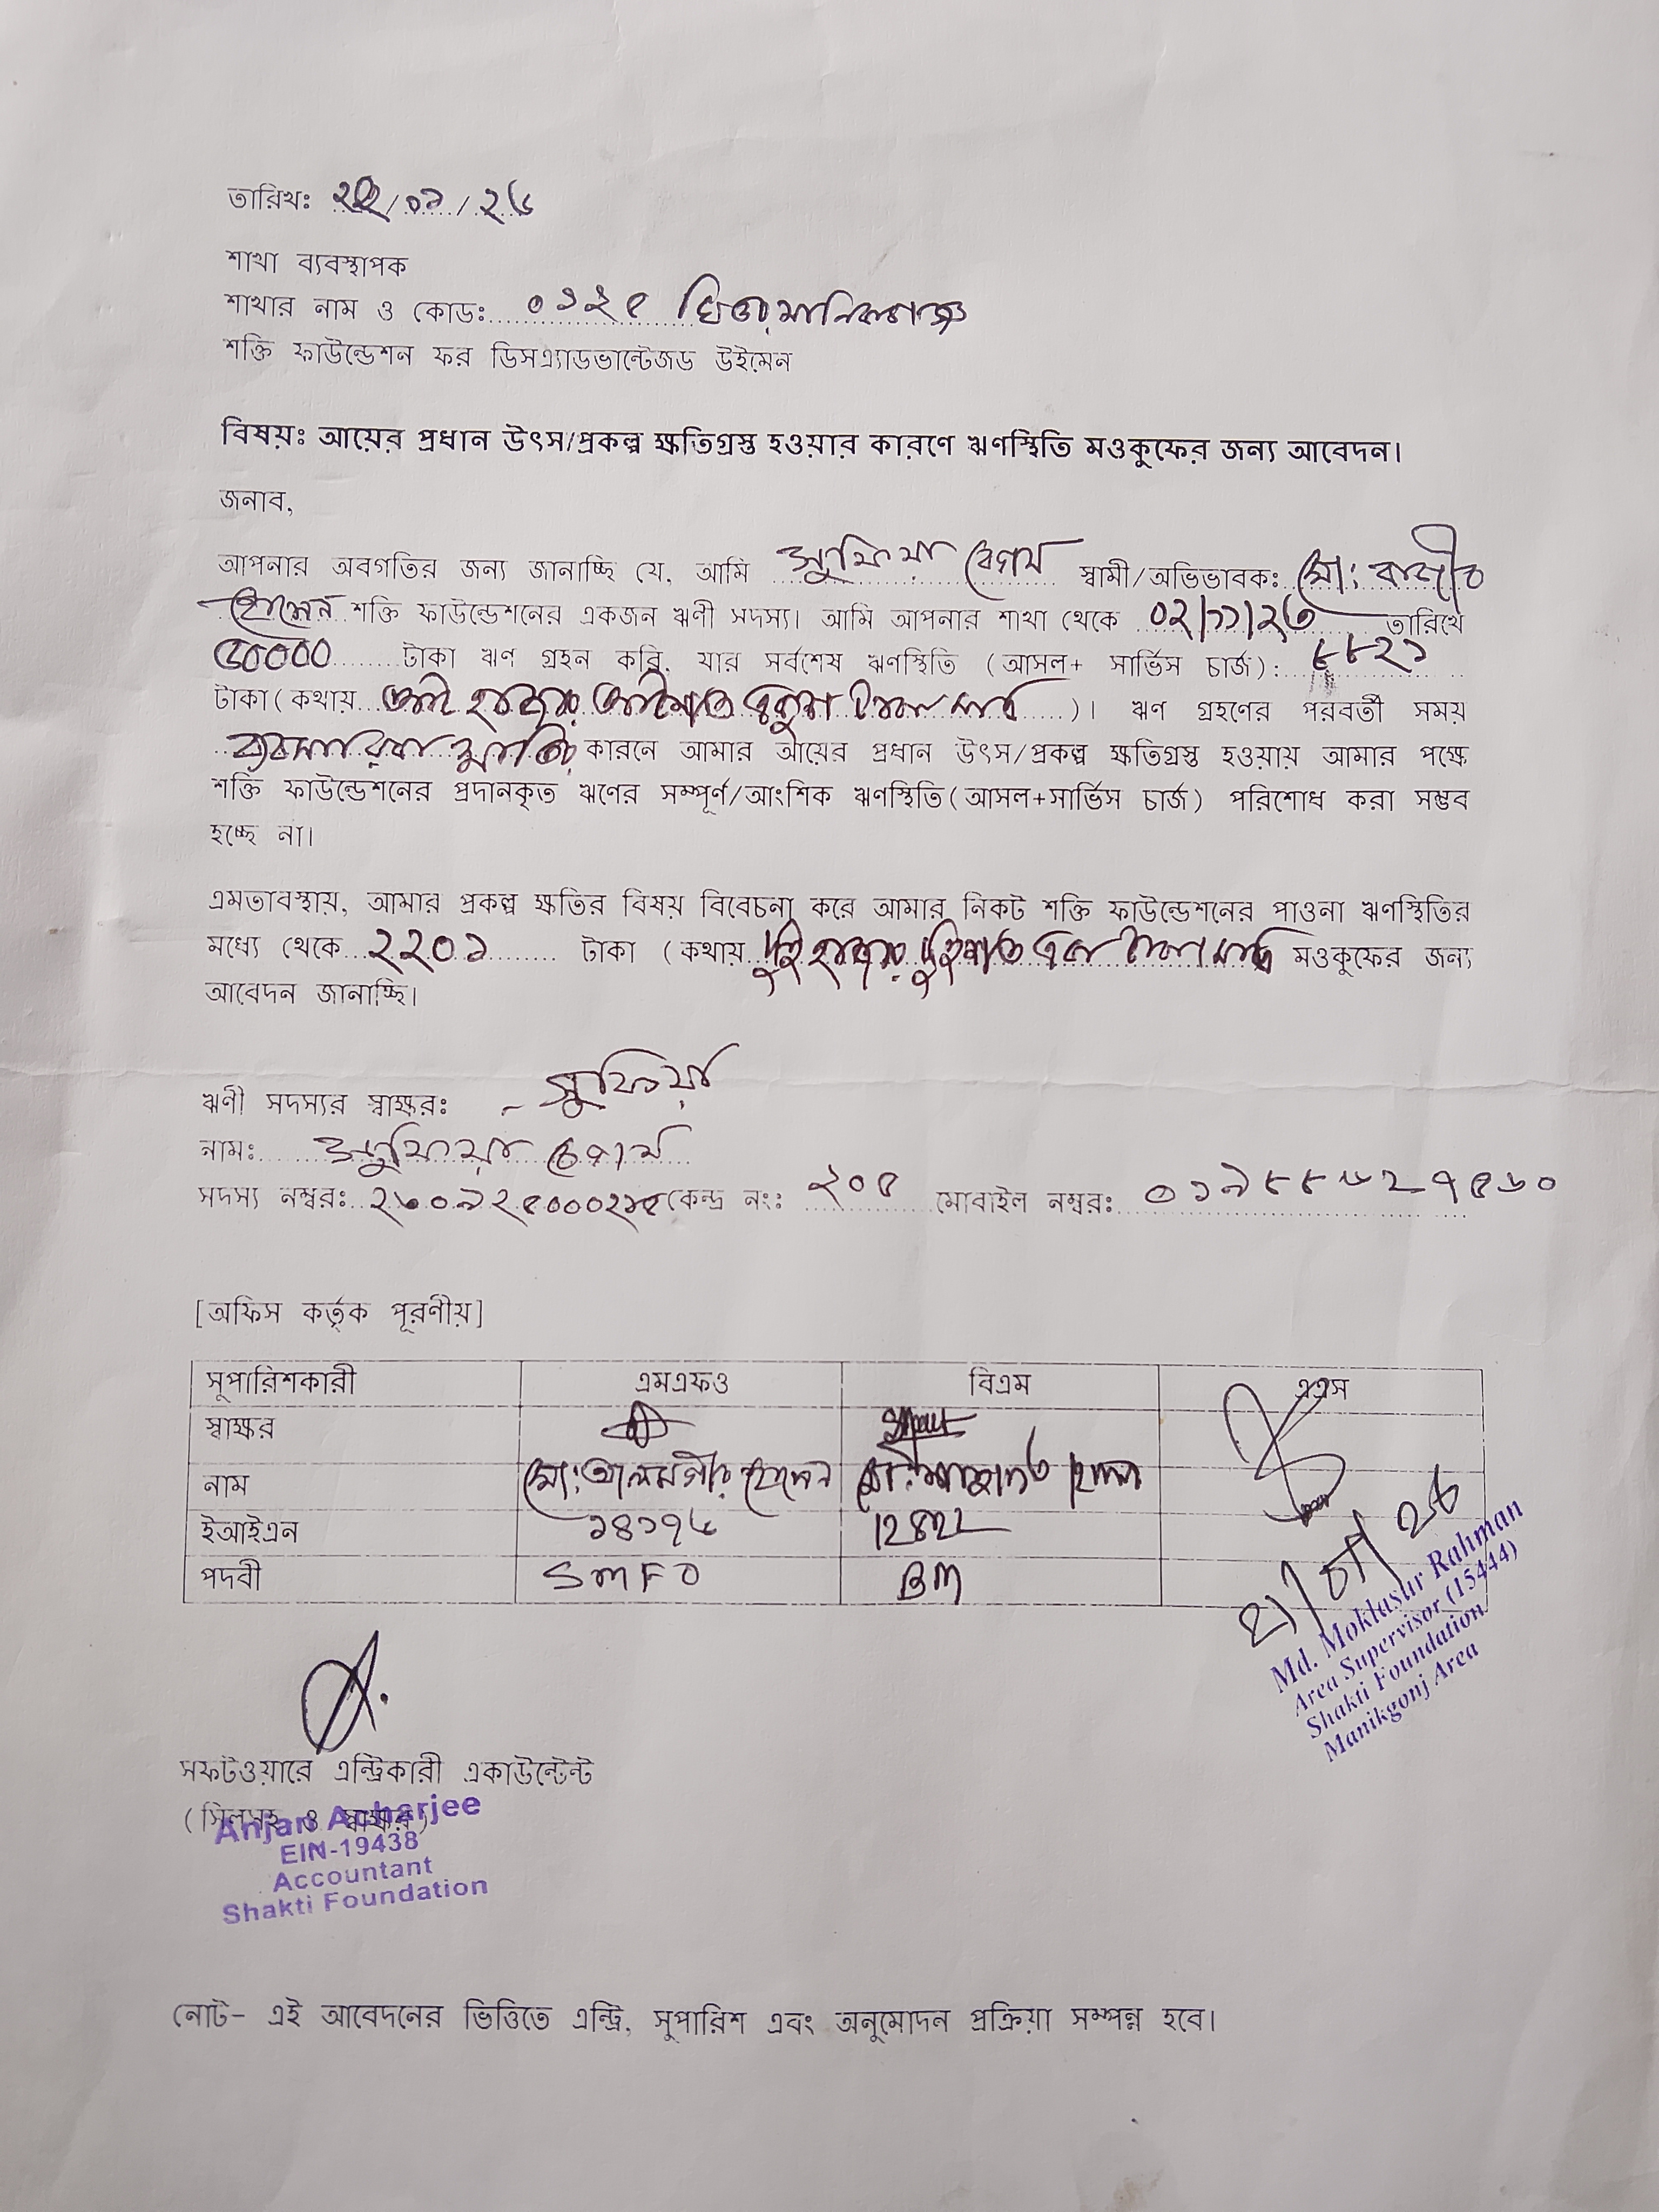 তারিখঃ ২২/০১/২৬
শাখা ব্যবস্থাপক
শাখার নাম ও কোডঃ ০১২৫ ঘিওর, মানিকগঞ্জ
শক্তি ফাউন্ডেশন ফর ডিসএ্যাডভান্টেজড উইমেন
বিষয়ঃ আয়ের প্রধান উৎস/প্রকল্প ক্ষতিগ্রস্ত হওয়ার কারণে ঋণস্থিতি মওকুফের জন্য আবেদন।
জনাব,
আপনার অবগতির জন্য জানাচ্ছি যে, আমি সুফিয়া বেগম স্বামী/অভিভাবকঃ মো: রাজীব
হোসেন শক্তি ফাউন্ডেশনের একজন ঋণী সদস্য। আমি আপনার শাখা থেকে ০২/১১/২৩ তারিখে
৩০০০০ টাকা ঋণ গ্রহন করি, যার সর্বশেষ ঋণস্থিতি (আসল+ সার্ভিস চার্জ): ৮৮২১
টাকা(কথায় আট হাজার আটশত একুশ টাকা মাত্র)। ঋণ গ্রহণের পরবর্তী সময়
কারনে আমার আয়ের প্রধান উৎস/প্রকল্প ক্ষতিগ্রস্ত হওয়ায় আমার পক্ষে
শক্তি ফাউন্ডেশনের প্রদানকৃত ঋণের সম্পূর্ণ/আংশিক ঋণস্থিতি(আসল+সার্ভিস চার্জ) পরিশোধ করা সম্ভব
হচ্ছে না।
এমতাবস্থায়, আমার প্রকল্প ক্ষতির বিষয় বিবেচনা করে আমার নিকট শক্তি ফাউন্ডেশনের পাওনা ঋণস্থিতির
মধ্যে থেকে ২২০১ টাকা (কথায় দুই হাজার দুইশত এক টাকা মাত্র মওকুফের জন্য
আবেদন জানাচ্ছি।
ঋণী সদস্যর স্বাক্ষরঃ সুফিয়া
নামঃ সুফিয়া বেগম
সদস্য নম্বরঃ কেন্দ্র নংঃ ২০৫ মোবাইল নম্বরঃ
[অফিস কর্তৃক পূরণীয়]
সুপারিশকারী এমএফও বিএম এএস
স্বাক্ষর
নাম মো: আলমগীর হোসেন
ইআইএন ১৪১৭৬ 12822
পদবী SMFO BM
Md. Moklasur Rahman
Area Supervisor (15444)
Shakti Foundation
Manikgonj Area
সফটওয়ারে এন্ট্রিকারী একাউন্টেন্ট
(সিলসহ ও স্বাক্ষর)
Anjan Acharjee
EIN-19438
Accountant
Shakti Foundation
নোট- এই আবেদনের ভিত্তিতে এন্ট্রি, সুপারিশ এবং অনুমোদন প্রক্রিয়া সম্পন্ন হবে।